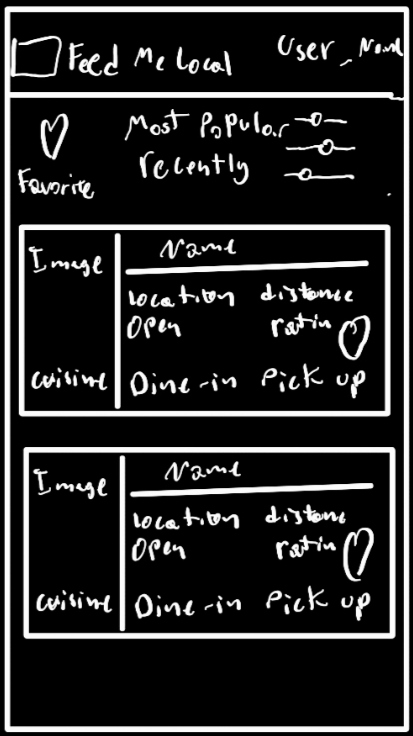 Feed Me Local User_Name
Most Popular
Favorite recently
Image Name
location distance
Open ratin
cuisine Dine-in Pick up
Image Name
location distanc
Open ratin
cuisine Dine-in Pick up